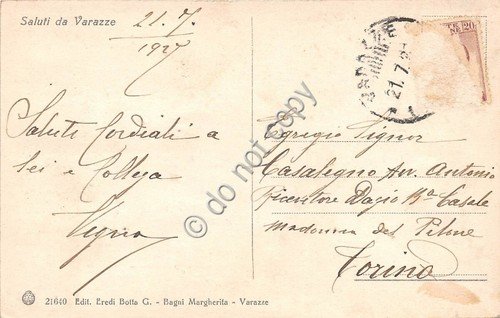 Saluti da Varazze
21.7.
1927
Saluti Cordiali a
Lei e Collega
Vigna
CENT. 20
VARAZZE
21.7.2
Egregio Signor
Casalegno Av. Antonio
Ricevitore Dazio Bª Casale
Madonna del Pilone
Torino
21640 Edit. Eredi Botta G. - Bagni Margherita - Varazze
© do not copy